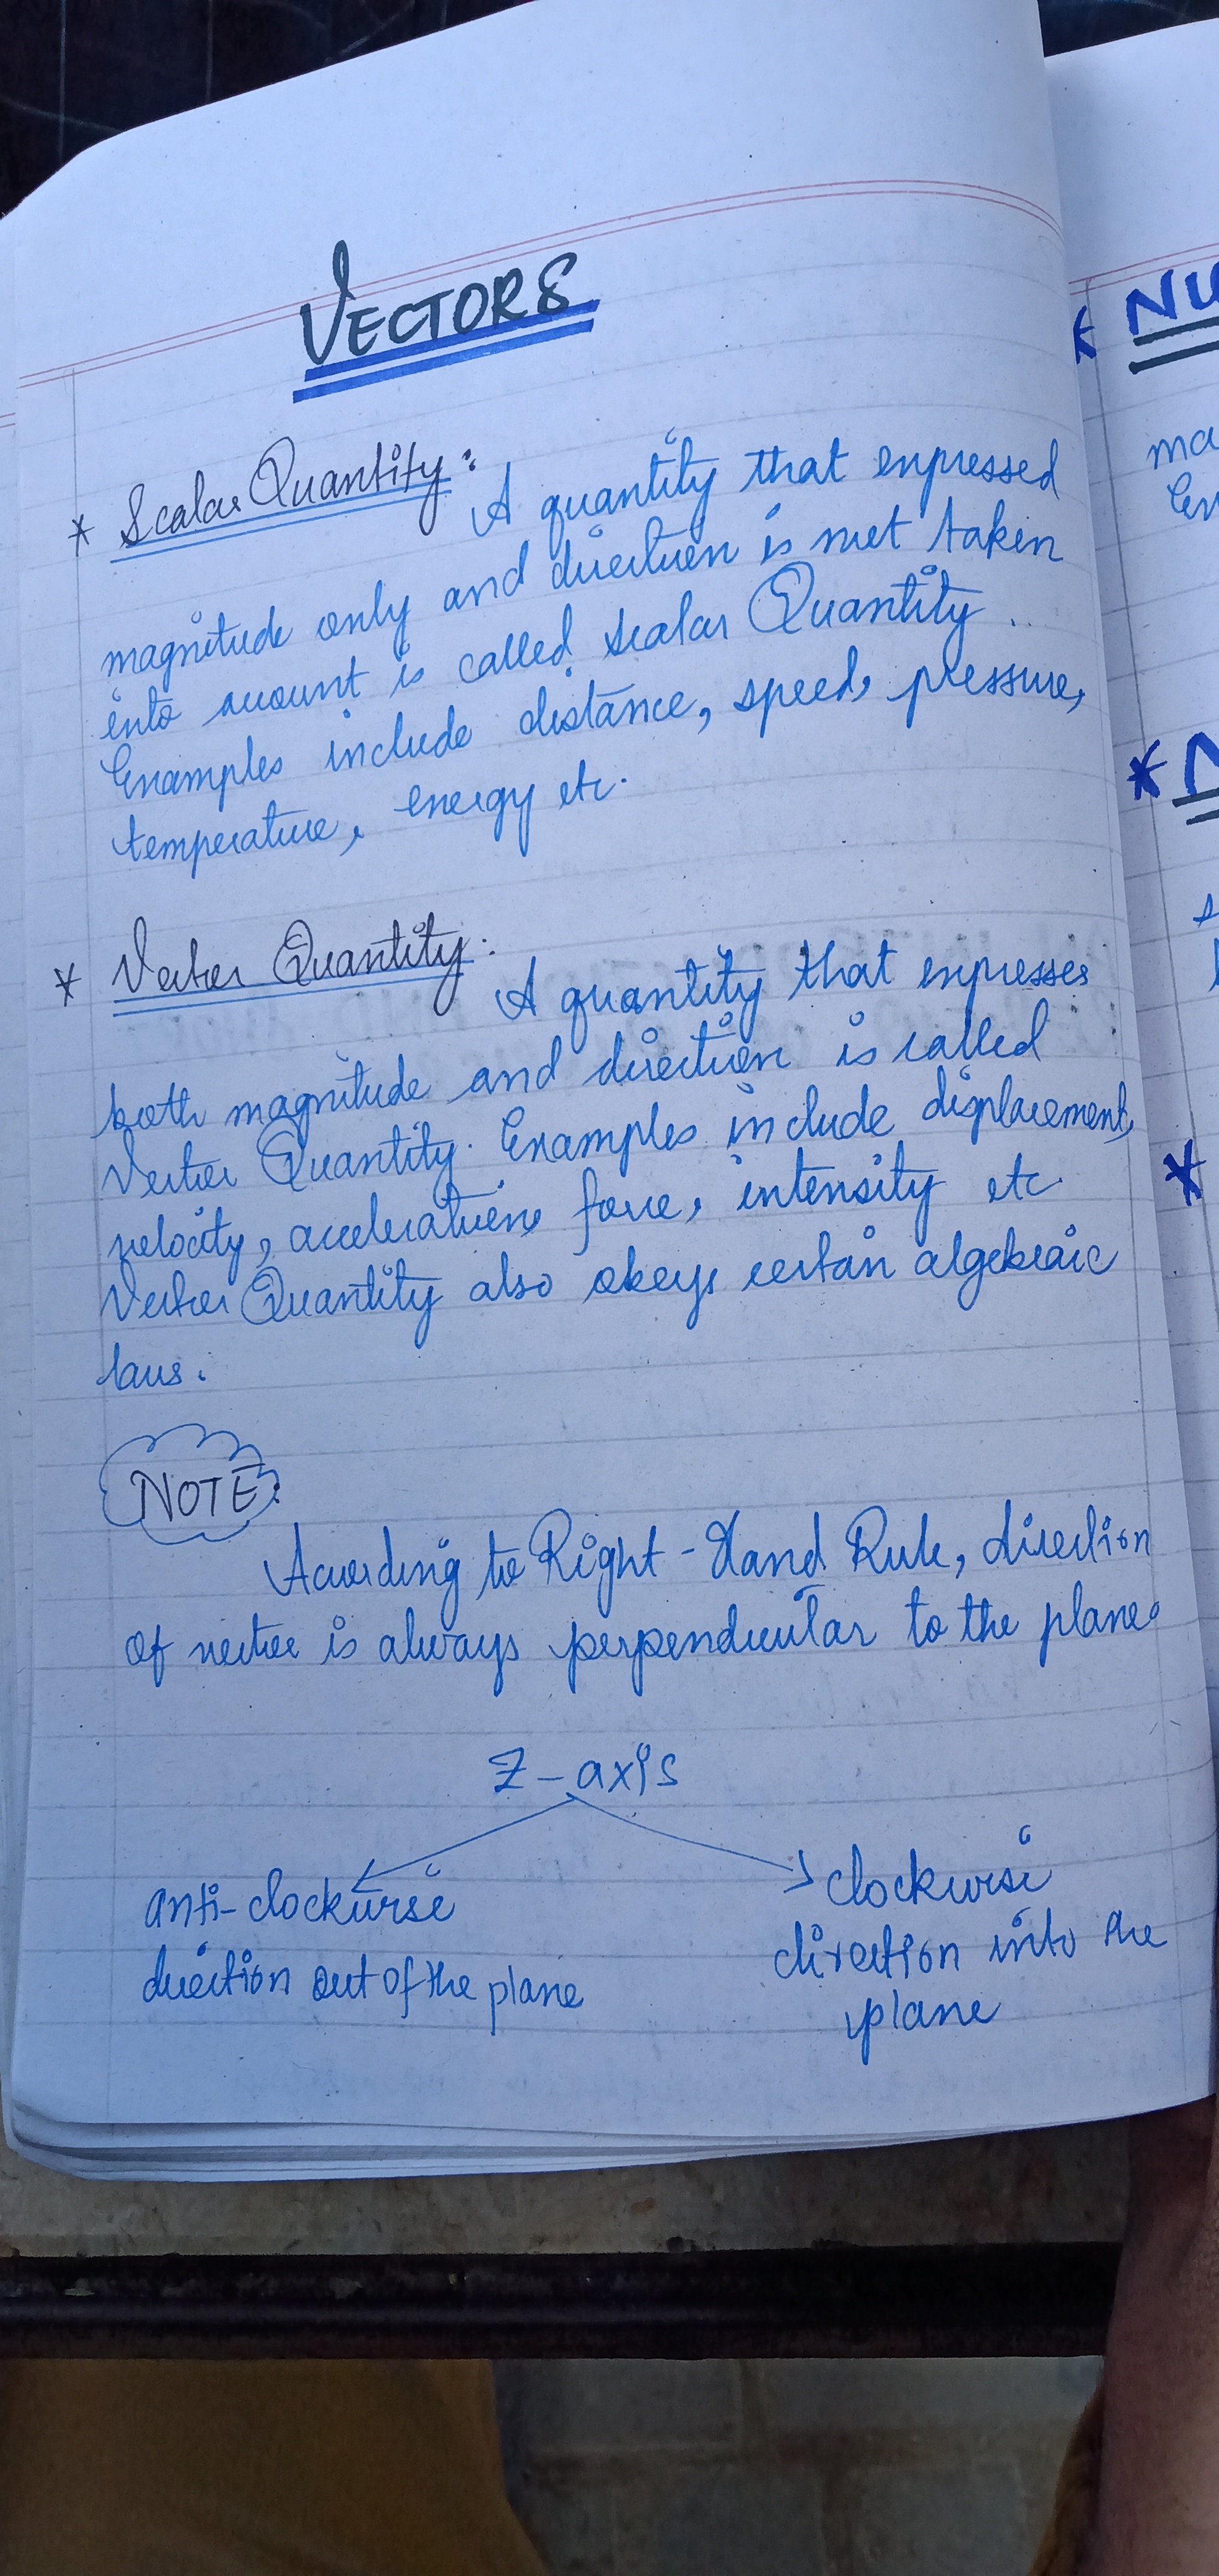 VECTORS
* Scalar Quantity:
A quantity that expressed
magnitude only and direction is not taken
into account is called scalar Quantity.
Examples include distance, speed, pressure,
temperature, energy etc.
* Vector Quantity:
A quantity that expresses
both magnitude and direction is called
Vector Quantity. Examples include displacement,
velocity, acceleration, force, intensity etc.
Vector Quantity also obeys certain algebraic
laws.
NOTE:
According to Right-Hand Rule, direction
of vector is always perpendicular to the plane.
Z-axis
anti-clockwise
direction out of the plane
clockwise
direction into the
plane
* NU
ma
*
*